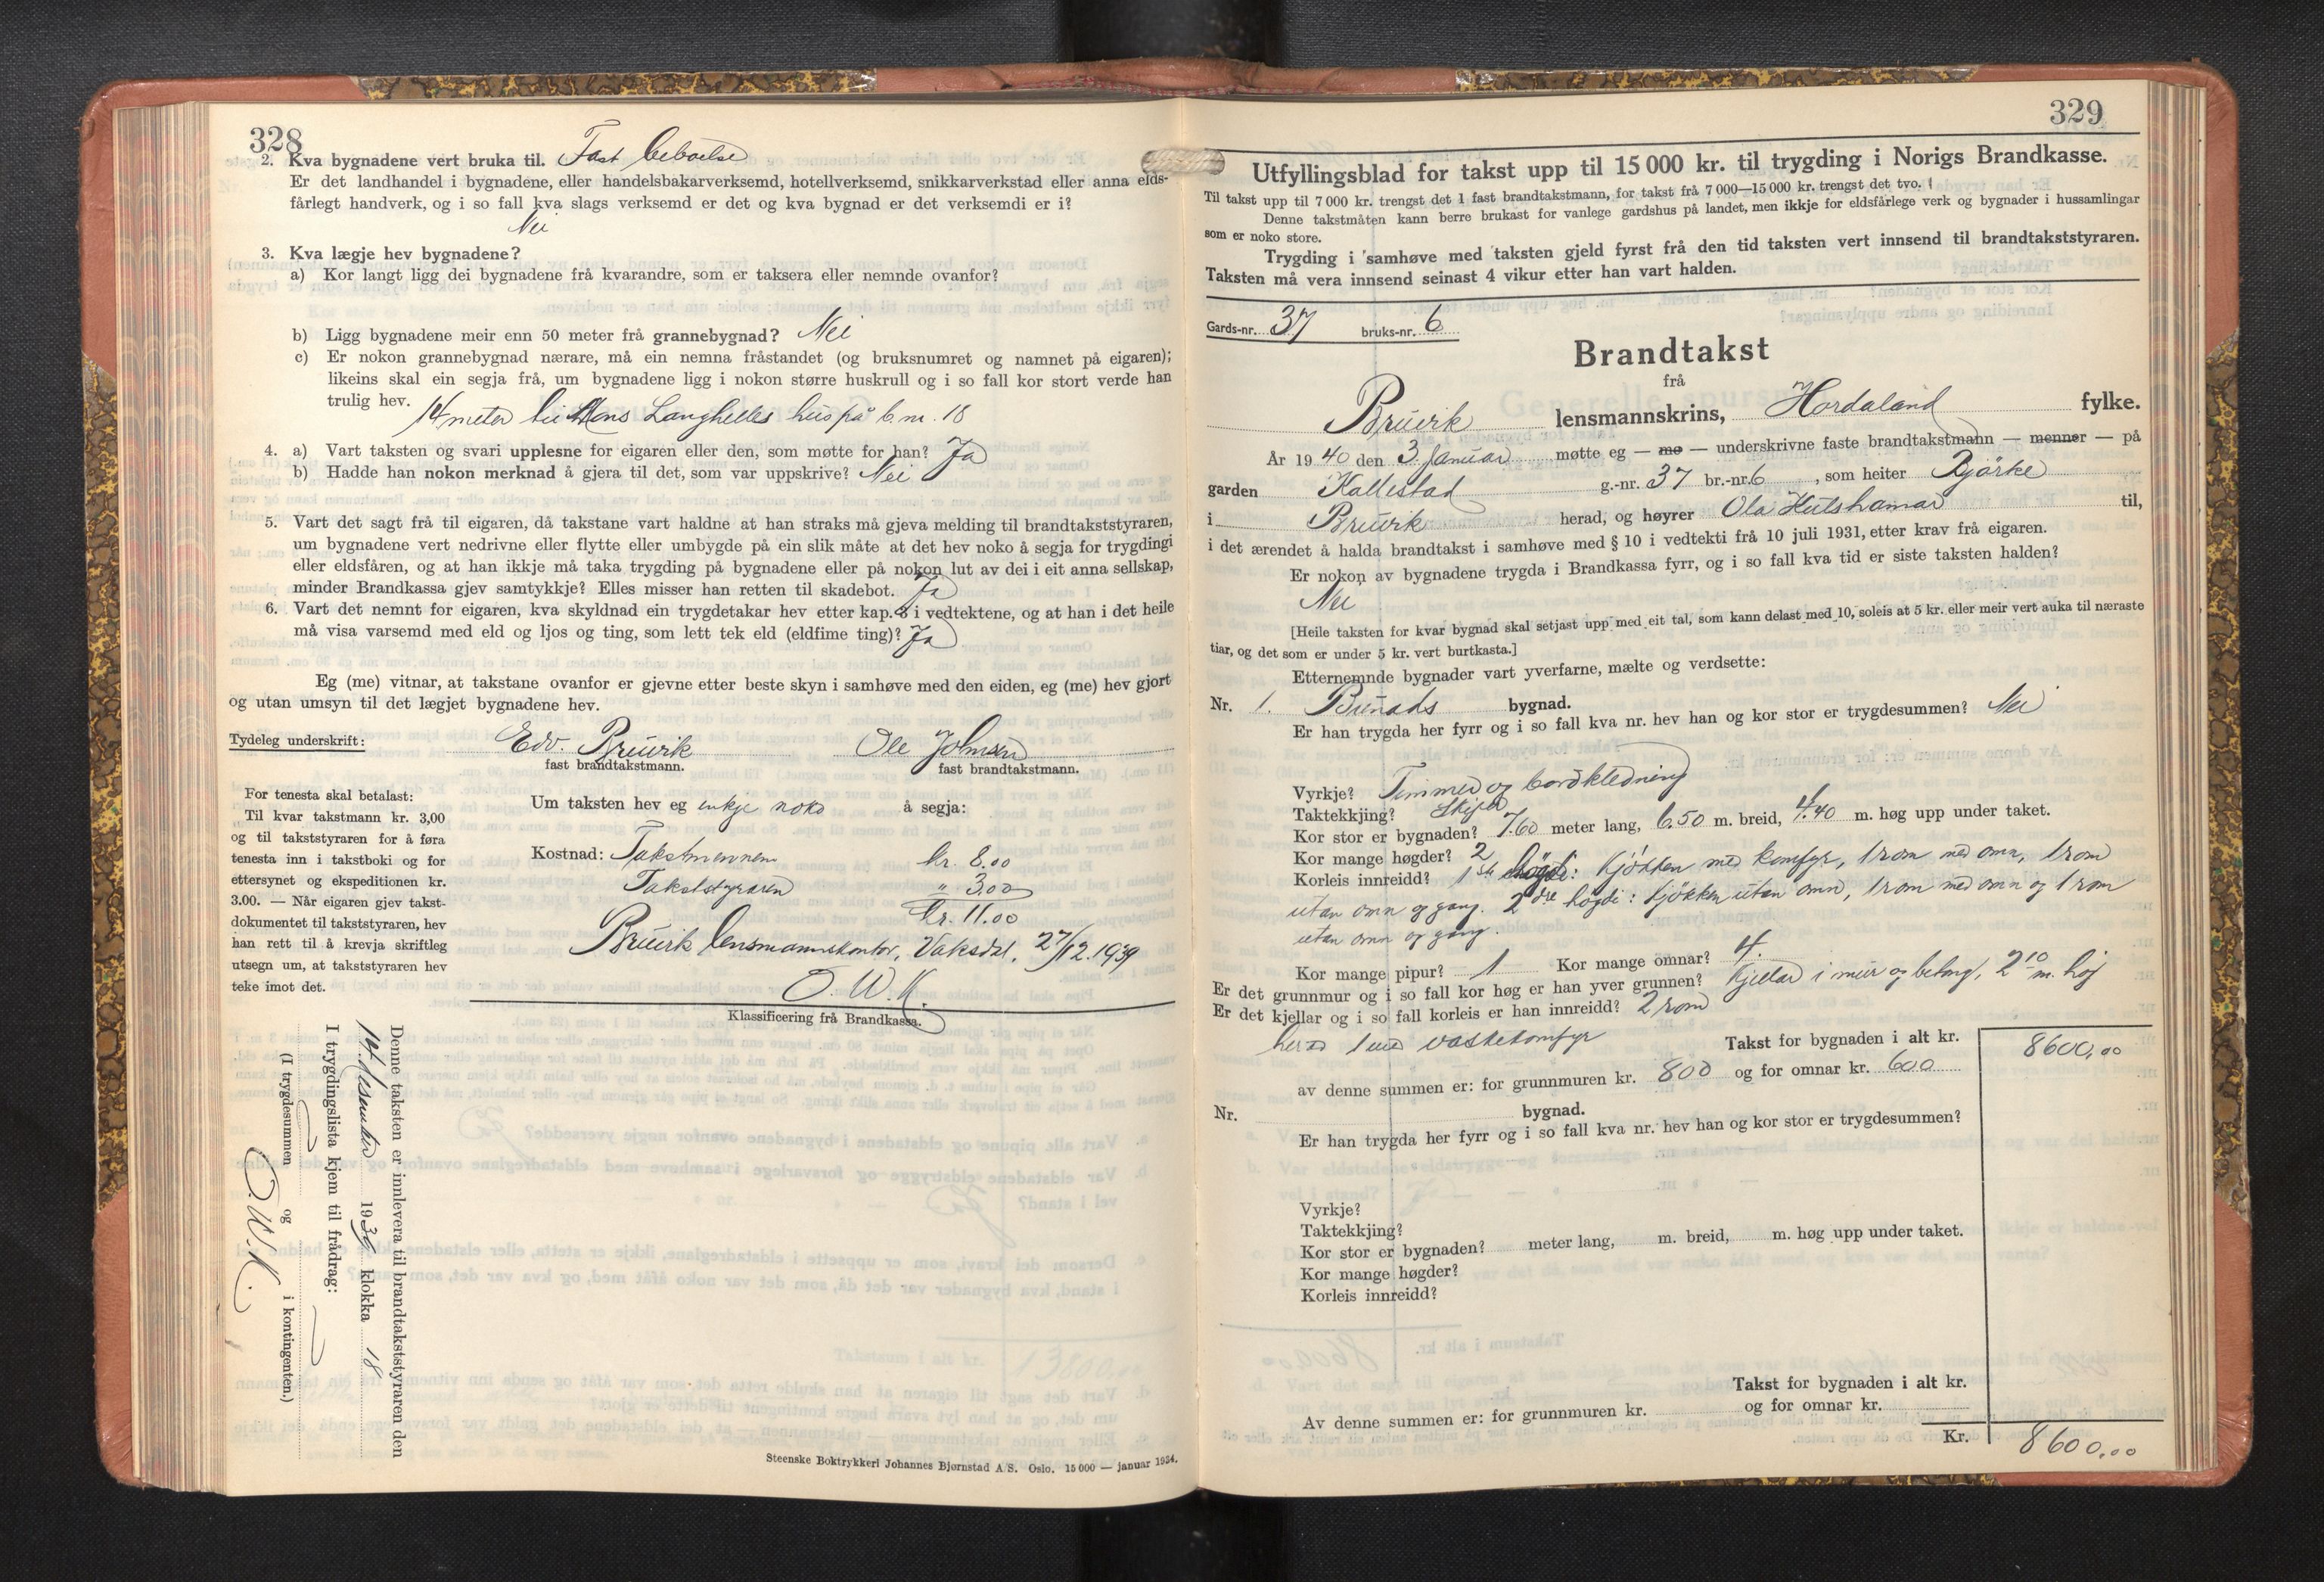 328
2. Kva bygnadene vert bruka til. Fast beboelse
Er det landhandel i bygnadene, eller handelsbakarverksemd, hotellverksemd, snikkarverkstad eller anna elds-
fårlegt handverk, og i so fall kva slags verksemd er det og kva bygnad er det verksemdi er i?
Nei
3. Kva lægje hev bygnadene?
a) Kor langt ligg dei bygnadene frå kvarandre, som er taksera eller nemnde ovanfor?
b) Ligg bygnadene meir enn 50 meter frå grannebygnad? Nei
c) Er nokon grannebygnad nærare, må ein nemna fråstandet (og bruksnumret og namnet på eigaren);
likeins skal ein segja frå, um bygnadene ligg i nokon større huskrull og i so fall kor stort verde han
trulig hev.
14 meter til Mons Langhelles hus på b.nr. 18
4. a) Vart taksten og svari upplesne for eigaren eller den, som møtte for han? Ja
b) Hadde han nokon merknad å gjera til det, som var uppskrive? Nei
5. Vart det sagt frå til eigaren, då takstane vart haldne at han straks må gjeva melding til brandtakststyraren,
um bygnadene vert nedrivne eller flytte eller umbygde på ein slik måte at det hev noko å segja for trygdingi
eller eldsfåren, og at han ikkje må taka trygding på bygnadene eller på nokon lut av dei i eit anna sellskap,
minder Brandkassa gjev samtykkje? Elles misser han retten til skadebot. Ja
6. Vart det nemnt for eigaren, kva skyldnad ein trygdetakar hev etter kap. 8 i vedtektene, og at han i det heile
må visa varsemd med eld og ljos og ting, som lett tek eld (eldfime ting)? Ja
Eg (me) vitnar, at takstane ovanfor er gjevne etter beste skyn i samhøve med den eiden, eg (me) hev gjort
og utan umsyn til det lægjet bygnadene hev.
Tydeleg underskrift: Edv. Bruvik Ole Johnsen
fast brandtakstmann. fast brandtakstmann.
For tenesta skal betalast:
Til kvar takstmann kr. 3,00
og til takststyraren for å føra
tenesta inn i takstboki og for
ettersynet og ekspeditionen kr.
3.00. — Når eigaren gjev takst-
dokumentet til takststyraren, hev
han rett til å krevja skriftleg
utsegn um, at takststyraren hev
teke imot det.
Um taksten hev eg inkje noko å segja:
Kostnad: Takstmennene kr. 8.00
Takststyraren " 3.00
kr. 11.00
Bruvik lensmannskontor, Vaksdal, 27/12.1939
O. W. K.
Klassificering frå Brandkassa.
Denne taksten er innlevera til brandtakststyraren den
14. desember 1939 klokka 18
I trygdingslista kjem til frådrag:
(I trygdesummen og i kontingenten.)
O. W. K.
Steenske Boktrykkeri Johannes Bjørnstad A/S. Oslo. 15 000 — januar 1934.
329
Utfyllingsblad for takst upp til 15 000 kr. til trygding i Norigs Brandkasse.
Til takst upp til 7 000 kr. trengst det 1 fast brandtakstmann, for takst frå 7 000—15 000 kr. trengst det tvo.
Denne takstmåten kann berre brukast for vanlege gardshus på landet, men ikkje for eldsfårlege verk og bygnader i hussamlingar
som er noko store.
Trygding i samhøve med taksten gjeld fyrst frå den tid taksten vert innsend til brandtakststyraren.
Taksten må vera innsend seinast 4 vikur etter han vart halden.
Gards-nr. 37 bruks-nr. 6
Brandtakst
frå
Bruvik lensmannskrins, Hordaland fylke.
År 1940 den 3. januar møtte eg — me — underskrivne faste brandtakstmann — menner — på
garden Kallestad g.-nr. 37 br.-nr. 6, som heiter Bjørke
i Bruvik herad, og høyrer Ola Hulshamar til,
i det ærendet å halda brandtakst i samhøve med § 10 i vedtekti frå 10 juli 1931, etter krav frå eigaren.
Er nokon av bygnadene trygda i Brandkassa fyrr, og i so fall kva tid er siste taksten halden?
Nei
[Heile taksten for kvar bygnad skal setjast upp med eit tal, som kann delast med 10, soleis at 5 kr. eller meir vert auka til næraste
tiar, og det som er under 5 kr. vert burtkasta.]
Etternemnde bygnader vart yverfarne, mælte og verdsette:
Nr. 1. Bunads bygnad.
Er han trygda her fyrr og i so fall kva nr. hev han og kor stor er trygdesummen? Nei
Vyrkje? Timmer og bordkledning
Taktekkjing? Skifer
Kor stor er bygnaden? 7.60 meter lang, 6.50 m. breid, 4.40 m. høg upp under taket.
Kor mange høgder? 2
Korleis innreidd? 1ste høgde: Kjøkken med komfyr, 1 rom med omn, 1 rom
utan omn og gang. 2dre høgde: Kjøkken utan omn, 1 rom med omn og 1 rom
utan omn og gang.
Kor mange pipur? 1 Kor mange omnar? 4.
Er det grunnmur og i so fall kor høg er han yver grunnen? Kjellar i mur og betong, 2 10 m. høj
Er det kjellar og i so fall korleis er han innreidd? 2 rom
herav 1 med vaskekomfyr
Takst for bygnaden i alt kr. 8600,00
av denne summen er: for grunnmuren kr. 800 og for omnar kr. 600
Nr. bygnad.
Er han trygda her fyrr og i so fall kva nr. hev han og kor stor er trygdesummen?
Vyrkje?
Taktekkjing?
Kor stor er bygnaden? meter lang, m. breid, m. høg upp under taket.
Kor mange høgder?
Korleis innreidd?
Takst for bygnaden i alt kr.
Av denne summen er: for grunnmuren kr. og for omnar kr.
Kr. 8600,00